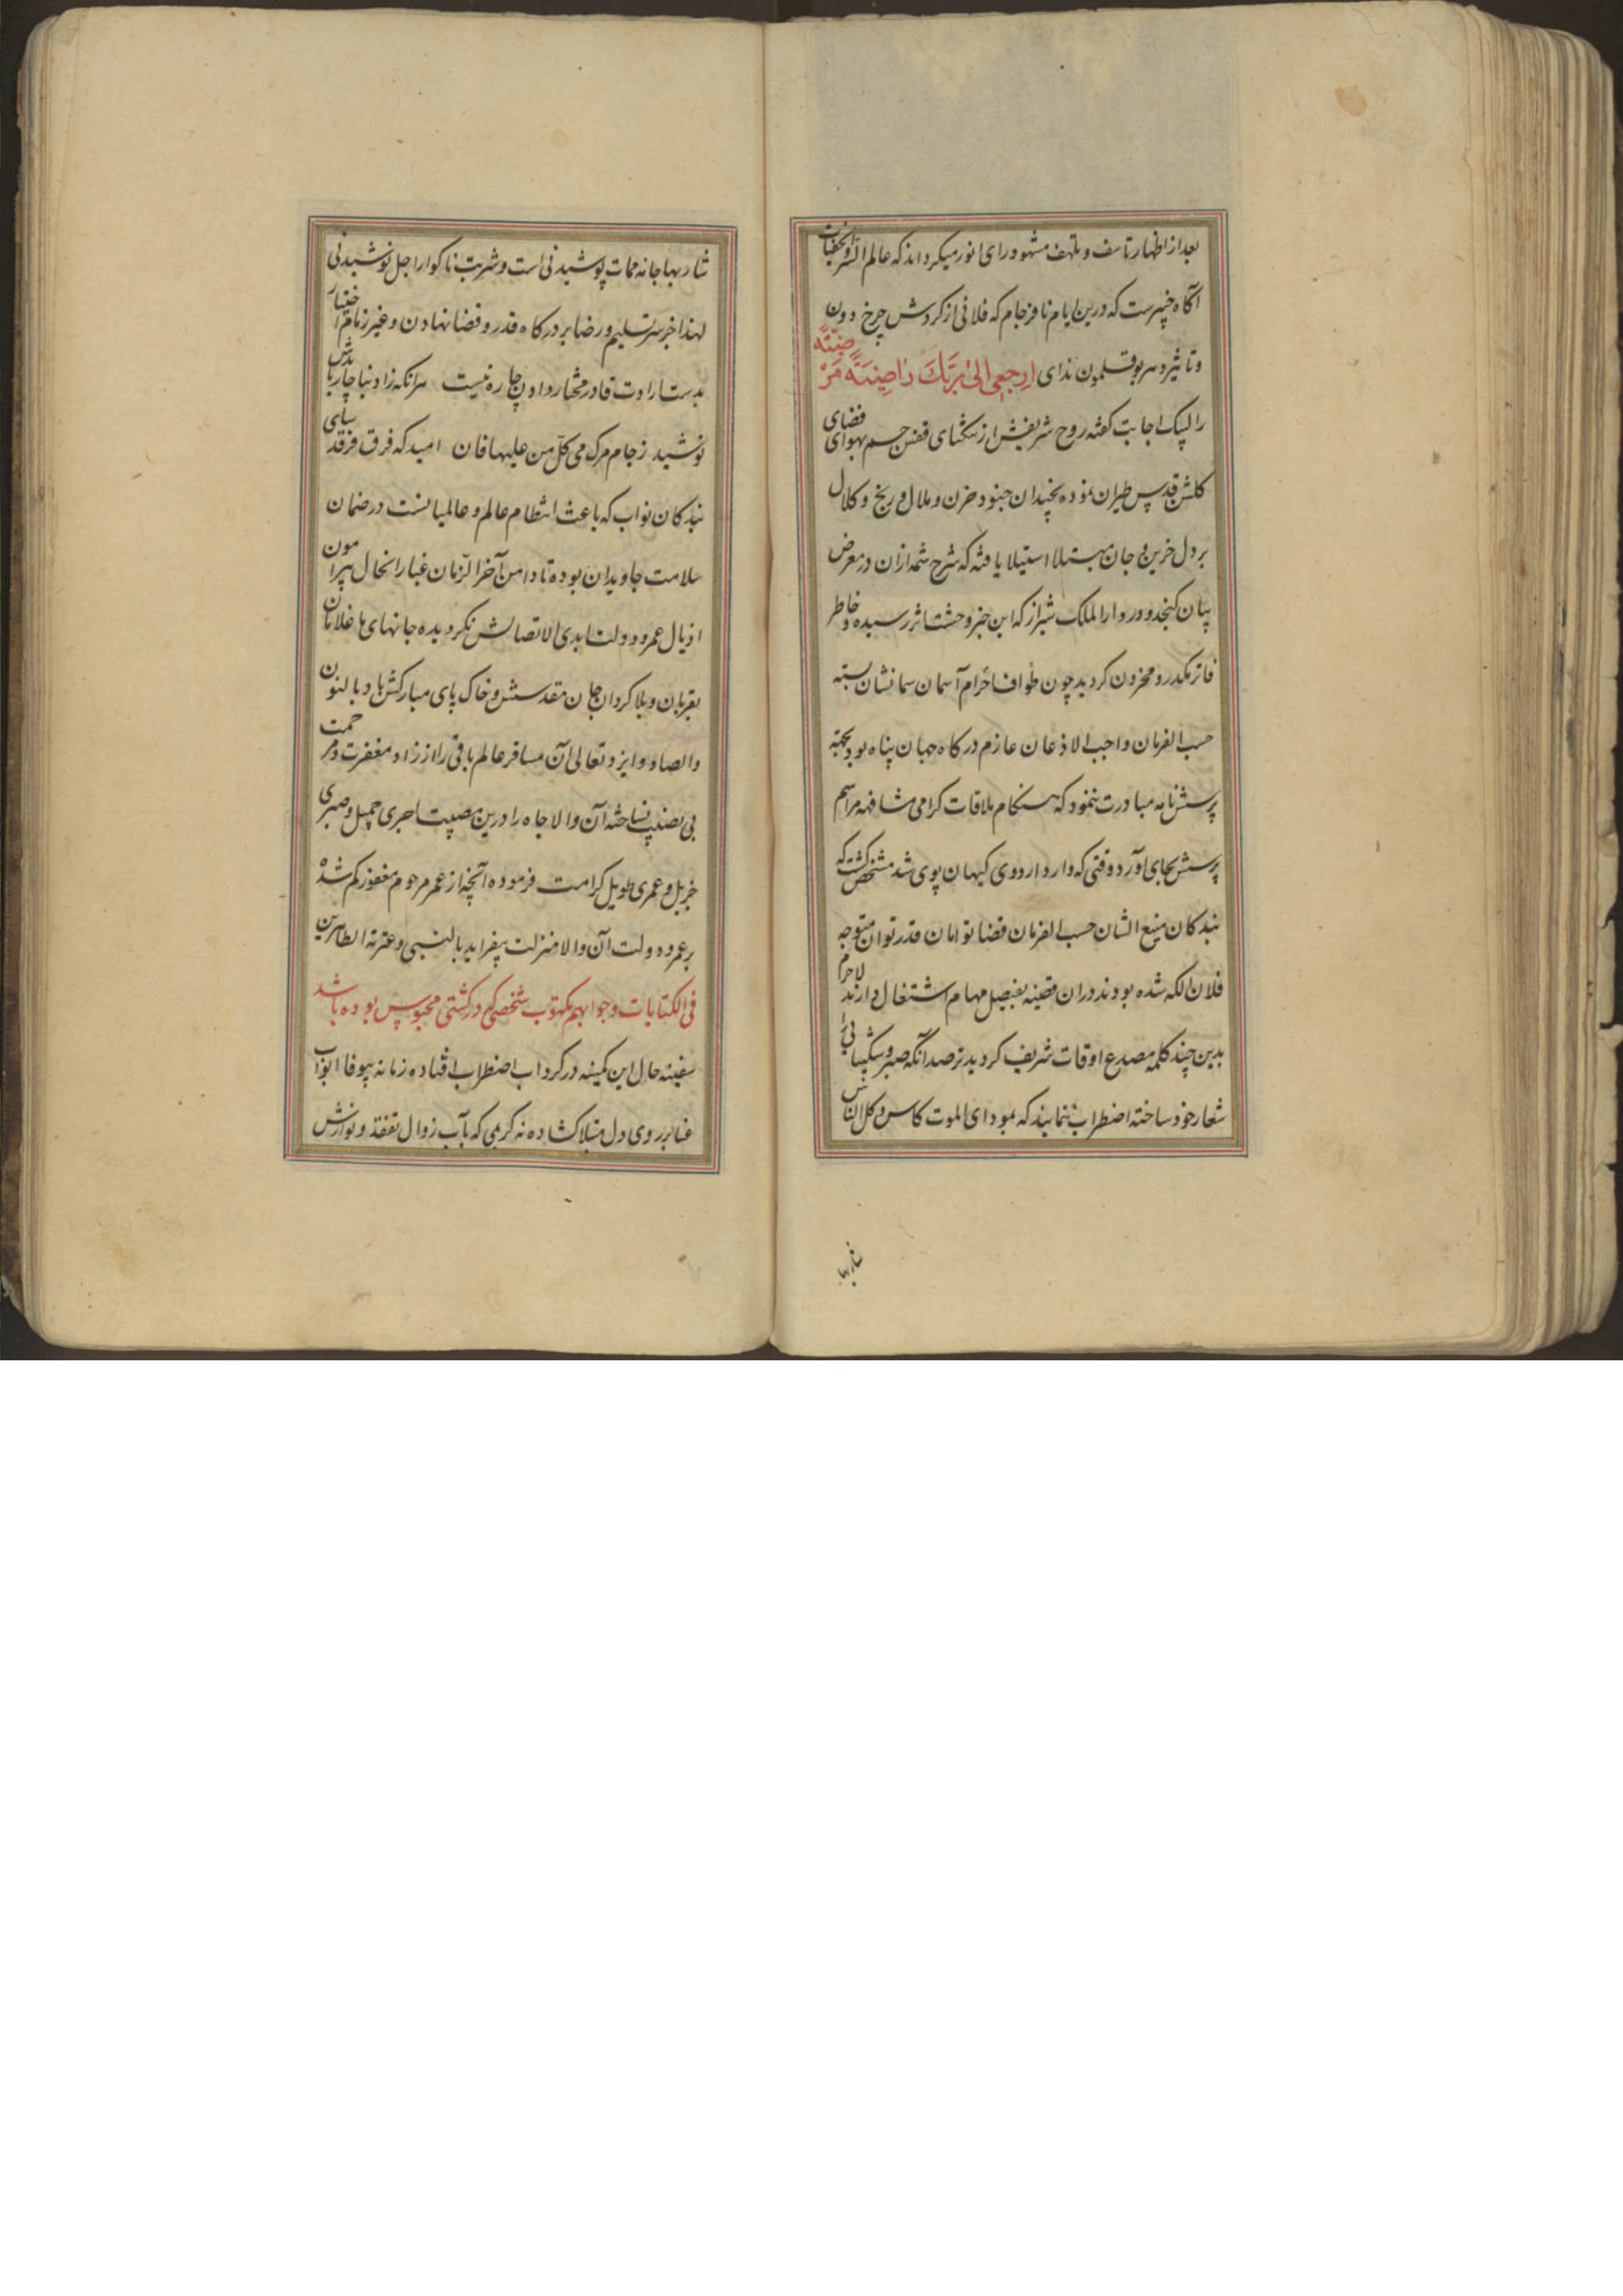 بعد از اظهار تاسف و تلهف مشهود رای انور میکرداند که عالم السر والخفیات
آکاه خبیرست که درین ایام نافرجام که فلانی از کردش چرخ دون
و تاثیر دهر بوقلمون ندای ارجعی الی ربک راضیة مرضیة
را لبیک اجابت کفته روح شریفش از تنکنای قفس جسم بهوای فضای
کلشن قدس طیران نموده بچندان جنود حزن و ملال و رنج و کلال
بر دل حزین و جان مبتلا استیلا یافته که شرح شمه ازان در معرض
بیان کنجد و در دار الملک شیراز که این خبر وحشت اثر رسیده خاطر
فاتر مکدر و محزون کردید چون طواف احرام آسمان سمانشان بسته
حسب الفرمان واجب الاذعان عازم درکاه جهان پناه بود بجهته
پرسش نامه مبادرت ننمود که هنکام ملاقات کرامی مشافهه مراسم
پرسش بجای آورد وقتی که وارد اردوی کیهان پوی شد مشخص کشت که
بندکان منیع الشان حسب الفرمان قضا توامان قدر توان متوجه
فلان الکه شده بودند دران قضیه بفیصل مهام اشتغال دارند لاجرم
بدین چند کلمه مصدع اوقات شریف کردید ترصد آنکه صبر و شکیبائی را
شعار خود ساخته اضطراب ننمایند که بمودای الموت کاس و کل الناس
شاربها
شاربها جامه ممات پوشیدنی است و شربت ناکوار اجل نوشیدنی
لهذا جز سر تسلیم و رضا بر درکاه قدر و قضا نهادن و غیر زمام اختیار
بدست ارادت قادر مختار دادن چاره نیست هر آنکه زاد بناچار بایدش
نوشید ز جام مرک می کل من علیها فان امید که فرق فرقد سای
بندکان نواب که باعث انتظام عالم و عالمیانست در ضمان
سلامت جاویدان بوده تا دامن آخر الزمان غبار انحال پیرامون
اذیال عمر و دولت ابدی الاتصالش نکردیده جانهای ما غلامان
بقربان و بلا کردان جان مقدسش و خاک پای مبارکش باد بالنون
والصاد و ایزد تعالی آن مسافر عالم باقی را از زاد مغفرت و مرحمت
بی نصیب نساخته آن والا جاه را درین مصیبت اجری جمیل و صبری
جزیل و عمری طویل کرامت فرموده آنچه از عمر مرحوم مغفور کم شده
بر عمر و دولت آن والا منزلت بیفزاید بالنبی و عترته الطاهرین
فی الکتابات و جوابهم مکتوب شخصی که در کشتی محبوس بوده باشد
سفینه حال این کمینه در کرداب اضطراب افتاده زمانه بیوفا ابواب
عنا بر روی دل مبتلا کشاده نه کریمی که بآب زوال تفقد و نوازش